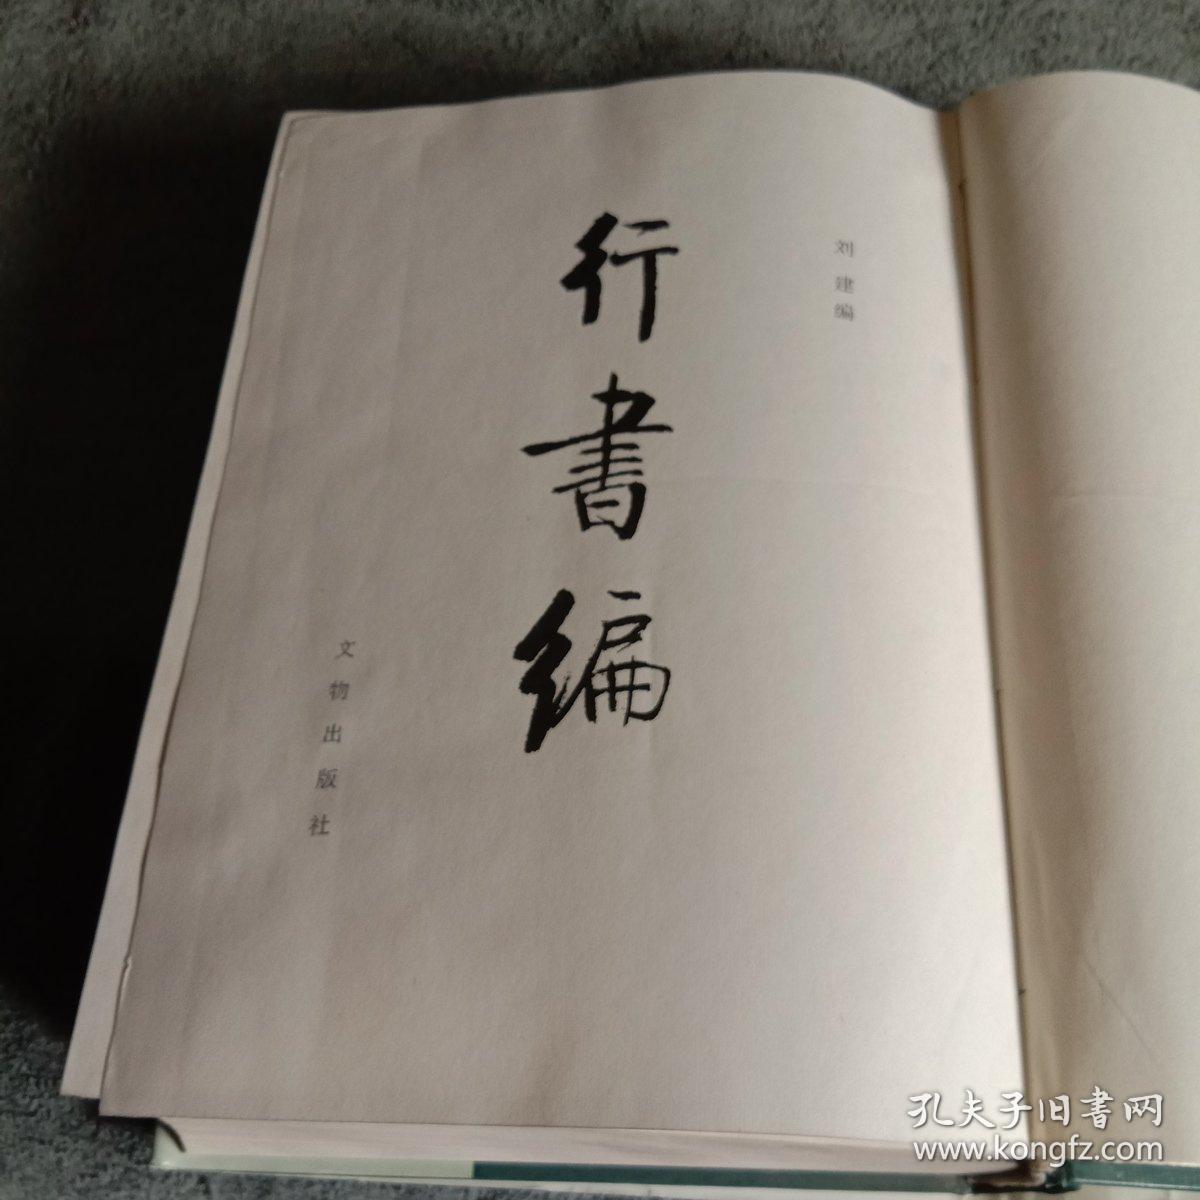 刘建编
行書编
文物出版社
孔夫子旧書网
www.kongfz.com